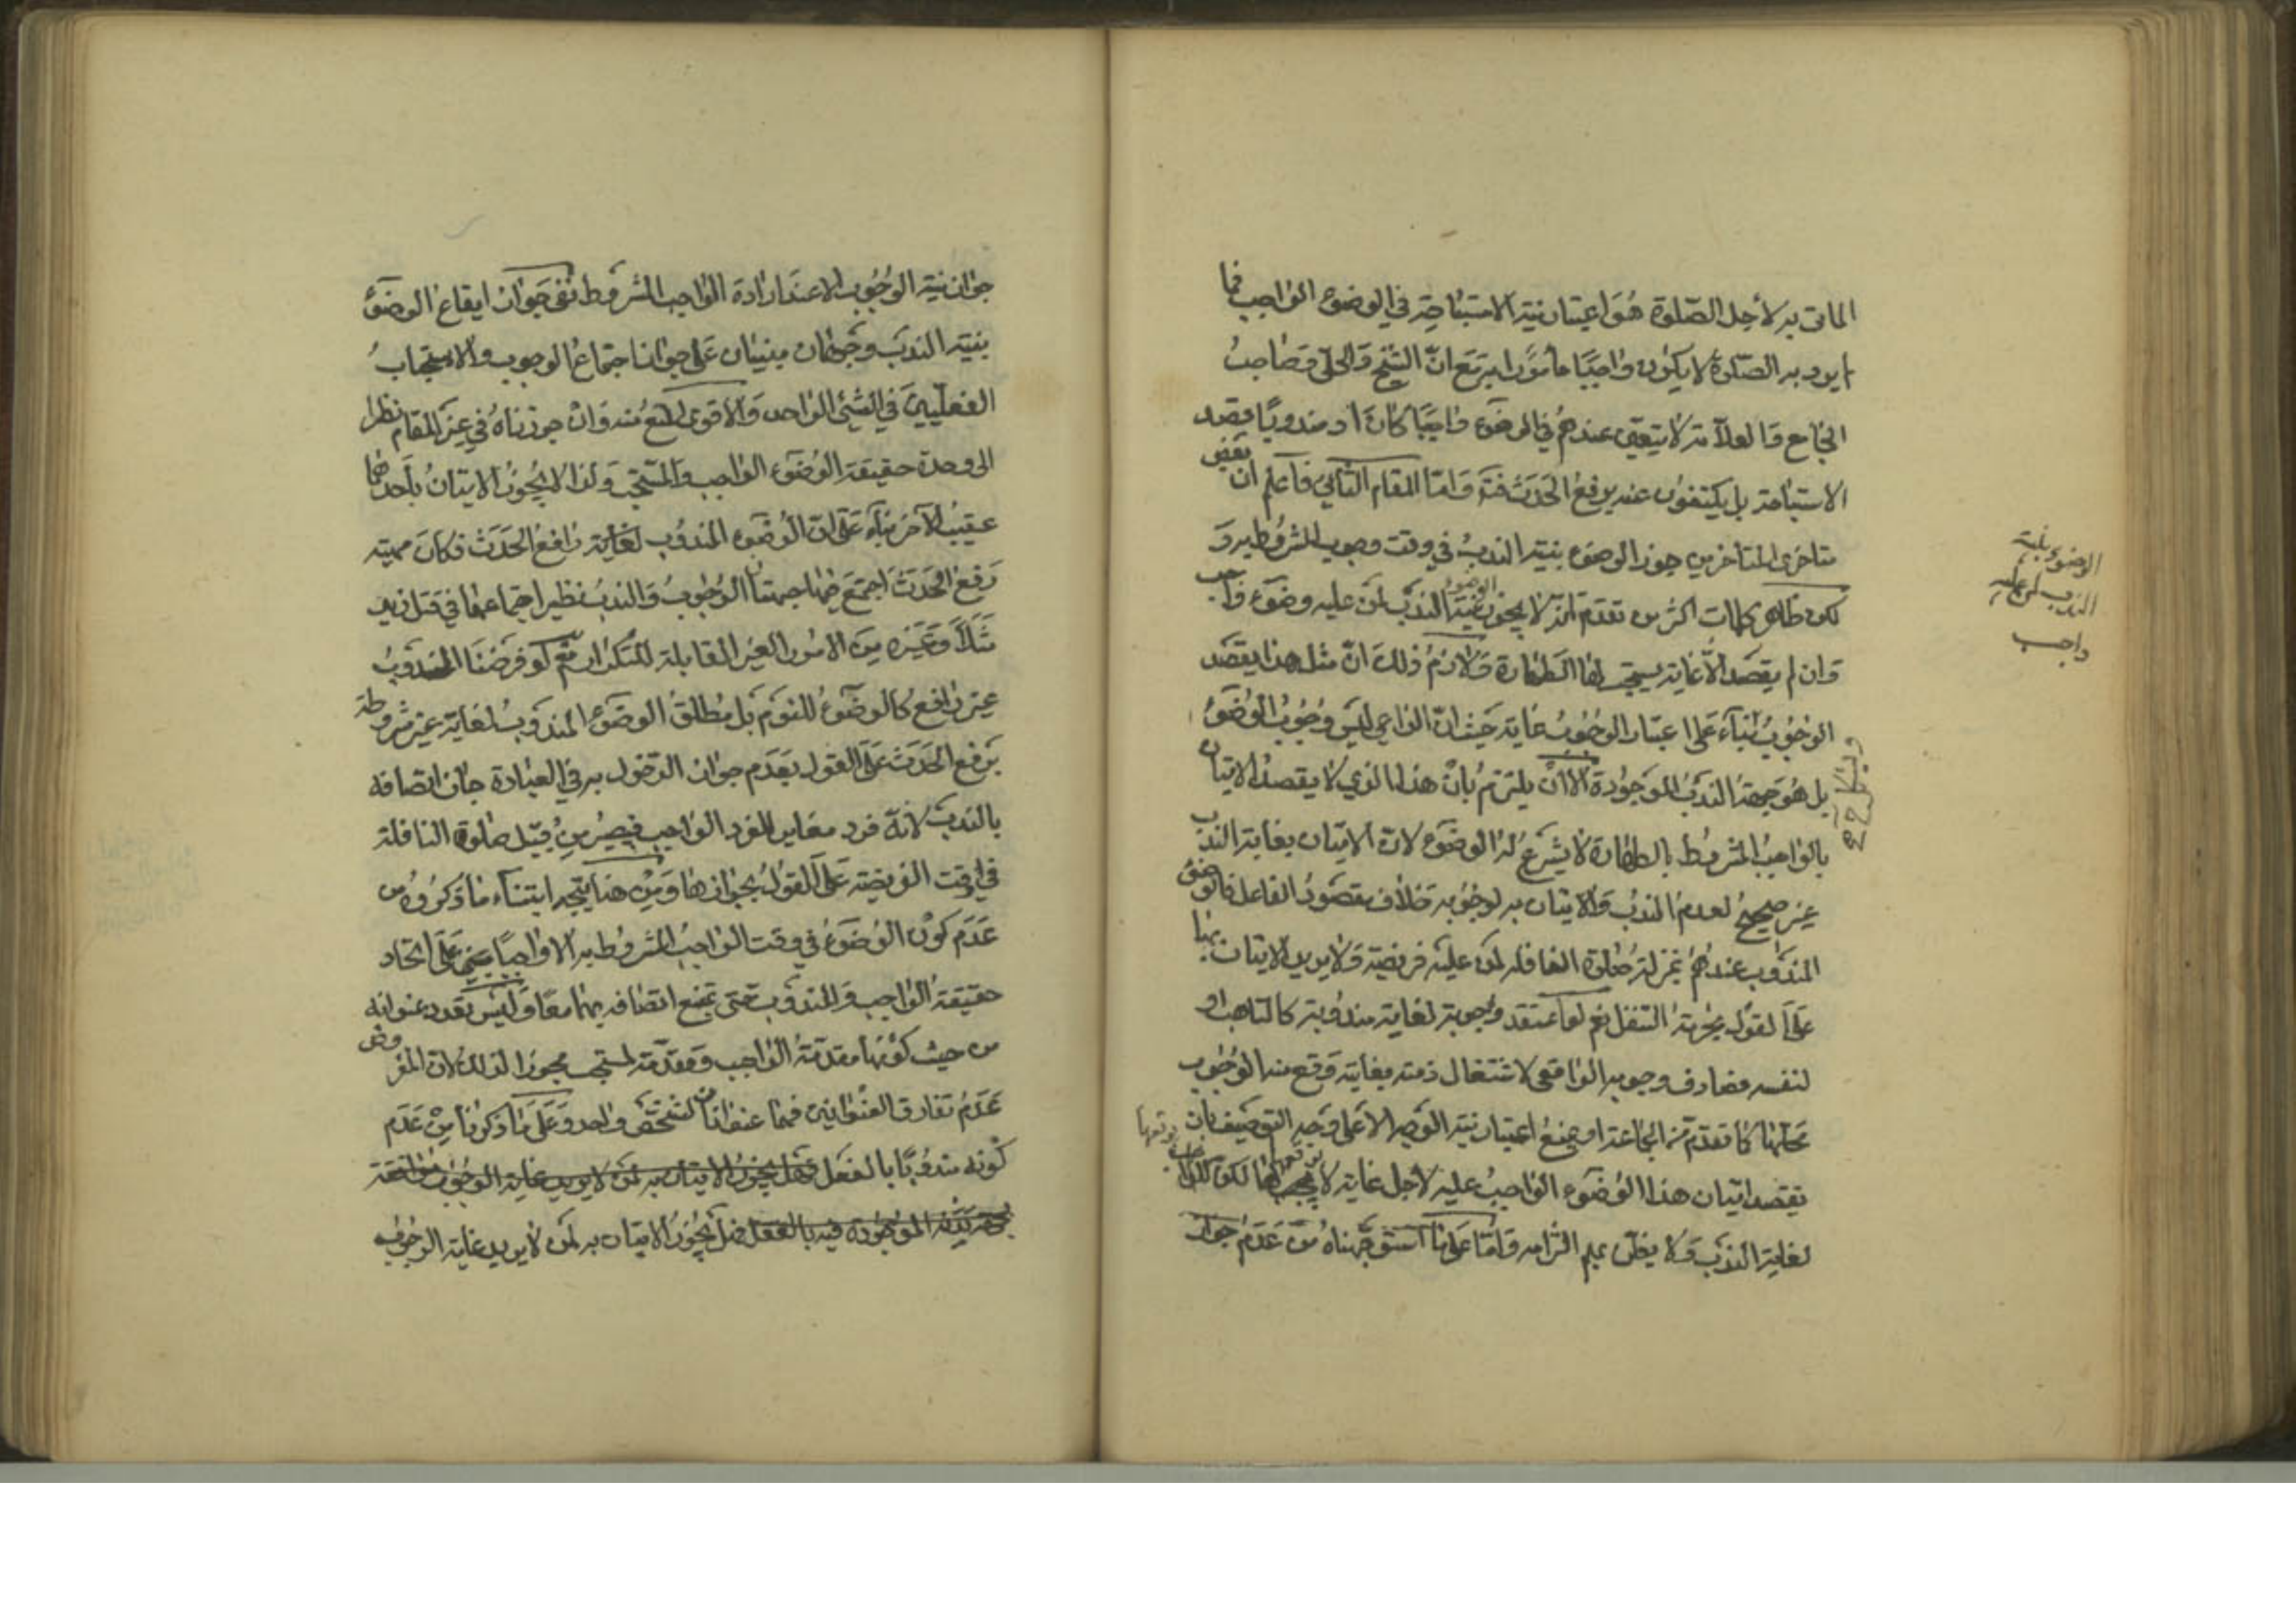 الماتى به لأجل الصّلوة هُوَ اعتبار نية الاستباحة في الوضوء الواجب فما
لم يرد به الصّلوة لا يكون واجبًا مأمورا به مَعَ انّ الشيخ وَالحلّى وَصاحبُ
الجامع وَالعلّامة لا يتعيّن عندهم في الوضوء واجبًا كان او مندوبًا قصد
الاستباحة بل يكتفون عنه برفع الحَدَث فتَ وَامّا المقام الثّاني فاعلم ان بَعض
متأخرى المتأخرين جوز الوضوء بنية الندبُ في وقت وجوب المشروط به وَ
لكن ظاهر كلمات اكثر من تقدّم انه لا يجوز الوضوء بنية النّدب لمن عليه وضوء واجب
وَان لم يقصد الّا غاية يستحب لها الطهارة وَلازمُ ذلك انّ مثل هذا يقصد
الوجُوبُ بناءً عَلى اعتبار الوجُوب غاية حَيث انّ الداعي ليس وُجُوبُ الوُضُوءُ
بل هُوَ جهة الندبُ الموجُودة الا ان يلتزم بانّ هذا الذي لا يقصدُ الاتيان
بالواجبُ المشروط بالطهارة لا يشرع له الوضوء لانّ الاتيان بغاية الندب
غير صحيحُ لعدم الندبُ وَالاتيان به لوجُوبه خلاف مقصودُ الفاعل فالوضوء
المندوب عندهُم بمنزلة صَلوة النافلة لمن عليه فريضة وَلا يريد الاتيان بها
عَلى القول بحُرمَة التنفل نعم لو اعتقد وجوبه لغاية مندُوبة كالتاهب او
لنفسه فصادف وجوبه الواقعى لاشتغال ذمته بغايته وَقع منه الوُجُوب
تقصد اتيان هذا الوُضوء الواجبُ عليه لأجل غاية لا يجب لها لكن
لغاية الندب وَلا يظن بهم التزامه وَامّا عَلى ما استوجهناهُ من عَدَمُ جَواز
الوضوء بنية
الندب لمن عليه
واجب
جواز نية الوجُوب الا عند ارادة الواجب المشروط ففى جَواز ايقاع الوضوءُ
بنية الندبَ وجهان مبنيّان عَلى جواز اجتماعُ الوجوب والاستحبابُ
الفعليين في الشئ الواحد وَالأقوى المنع منه وَان جوزناهُ في غير المقام نظرا
الى وحدة حقيقة الوُضوء الواجب وَالمستحبّ وَلذا لا يجُوزُ الاتيانُ بأحدهما
عقيبُ الآخر بناءً عَلى انّ الوُضوء المندُوب لغاية رافعُ الحَدَث فكان مهية
رَفعُ الحَدَث اجتمَعَ فيها جهتا الوُجُوبُ وَالندبُ نظير اجتماعهما في قتل زيد
مَثلاً وَغَيره مِنَ الامُور الغير القابلة للتكرار نعَم لو فرَضنَا المندوبُ
غير رافع كالوضوءُ للنوم بَل مُطلقُ الوضوء المندوب لغاية غير مشروطة
برَفع الحَدَث عَلى القول بعَدَم جواز الدّخول به في العبَادة جازَ اتصافه
بالنّدبَ لانّه فرد مغاير للفرد الواجب فيصيرُ من قبيل صَلوة النافلة
في وقت الفريضة عَلى القول بجَوازها وَمِن هنا يتّجه ابتناء ما ذكرُوهُ من
عَدَم كَون الوُضوءُ في وقت الواجبُ المشروُط به الا واجبًا عَلَى اتحاد
حقيقة الواجب وَالمندُوب حَتى يمتنع اتصافه بهما معًا وَليسَ تعدد عنوانه
من حيث كونها مقدّمةُ الواجب وَمقدّمة لمستحب مجوزا لذلك لانّ المفروض
عَدَمُ تفارق العنوانين فهما عنوانان لشخصَ واحد وَعَلَى مَا ذكرنا مِنْ عَدَم
كونه مندُوبًا بالفعل فهل يجوزُ الاتيان به لمن لا يريد غاية الوجُوب
جهته الموجُودة فيه بالفعل فهل يجُوزُ الاتيان به لمن لا يريد غاية الوجُوب